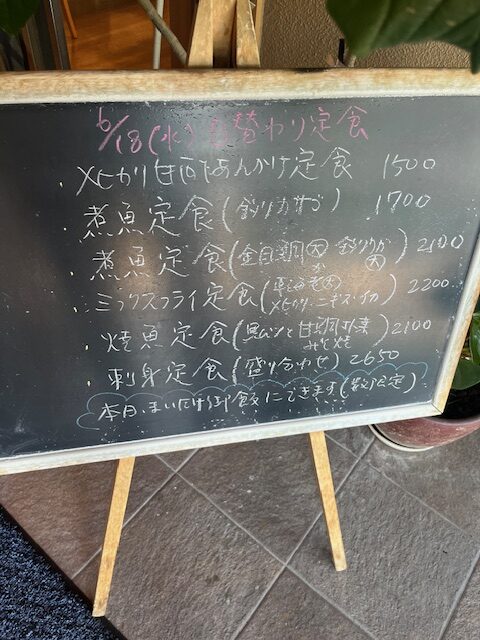 6/18(水)日替わり定食
メヒカリ甘酢あんかけ定食 1500
煮魚定食(釣りカサゴ) 1700
煮魚定食(金目鯛大か釣りカ大) 2100
ミックスフライ定食(車海老大 メヒカリ・ニギス・イカ) 2200
焼魚定食(黒ムツと甘鯛 みそ焼) 2100
刺身定食(盛り合わせ) 2650
本日、まいたけ御飯にできます(数限定)